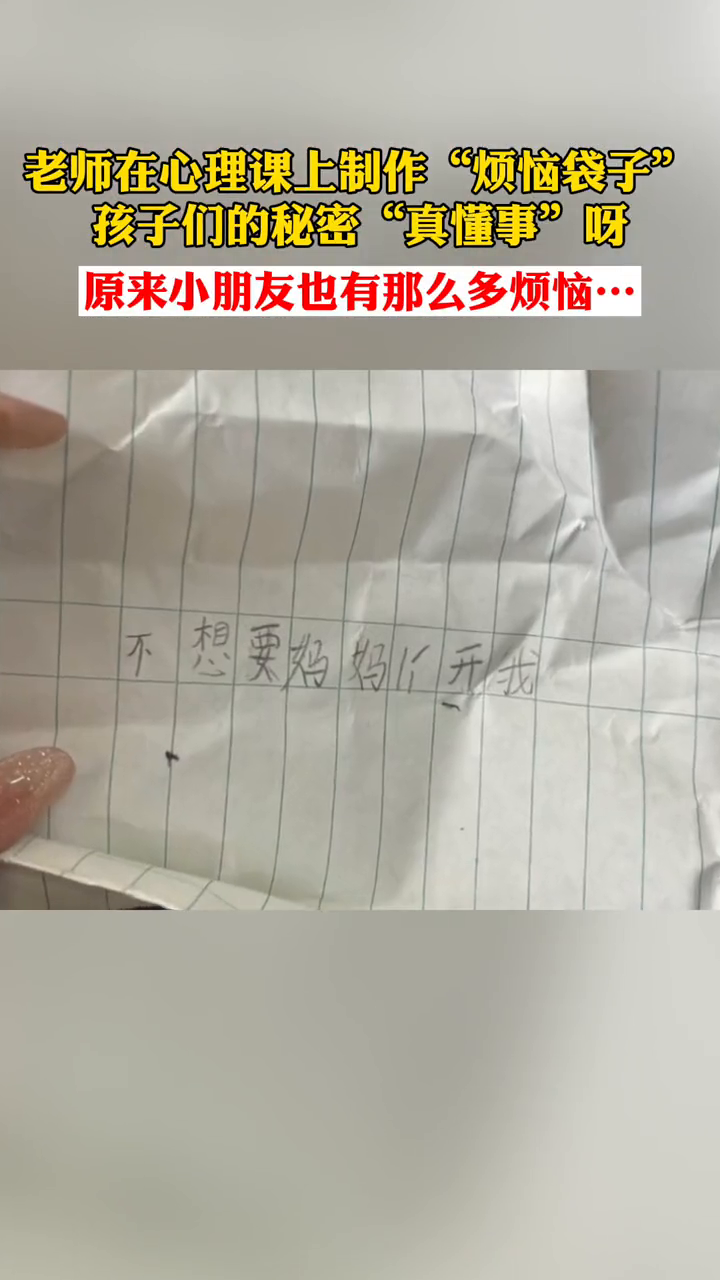 老师在心理课上制作“烦恼袋子”
孩子们的秘密“真懂事”呀
原来小朋友也有那么多烦恼…
不想要妈妈开我